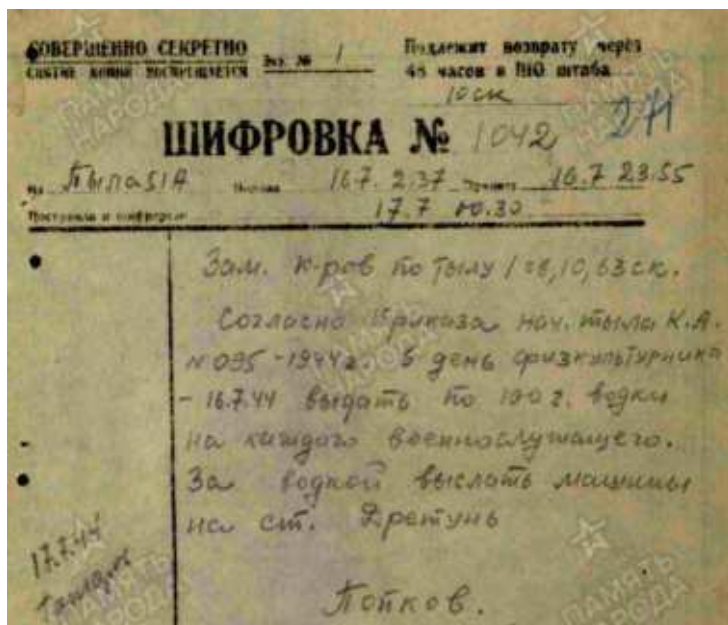 СОВЕРШЕННО СЕКРЕТНО
СНЯТИЕ КОПИЙ ВОСПРЕЩАЕТСЯ
Экз. № 1
Подлежит возврату через
48 часов в ШО штаба
10 ск
271
ШИФРОВКА № 1042
Из Тыла 51А Подана 16.7. 2.37 Принята 16.7 23.55
Поступила в шифрорган 17.7 00.30
Зам. к-ров по тылу 10,63 ск.
Согласно Приказа нач. тыла К.А.
№ 095-1944г. в день физкультурника
- 16.7.44 выдать по 100 г. водки
на каждого военнослужащего.
За водкой выслать машины
на ст. Дретунь
17.7.44
Попков.
ПАМЯТЬ НАРОДА